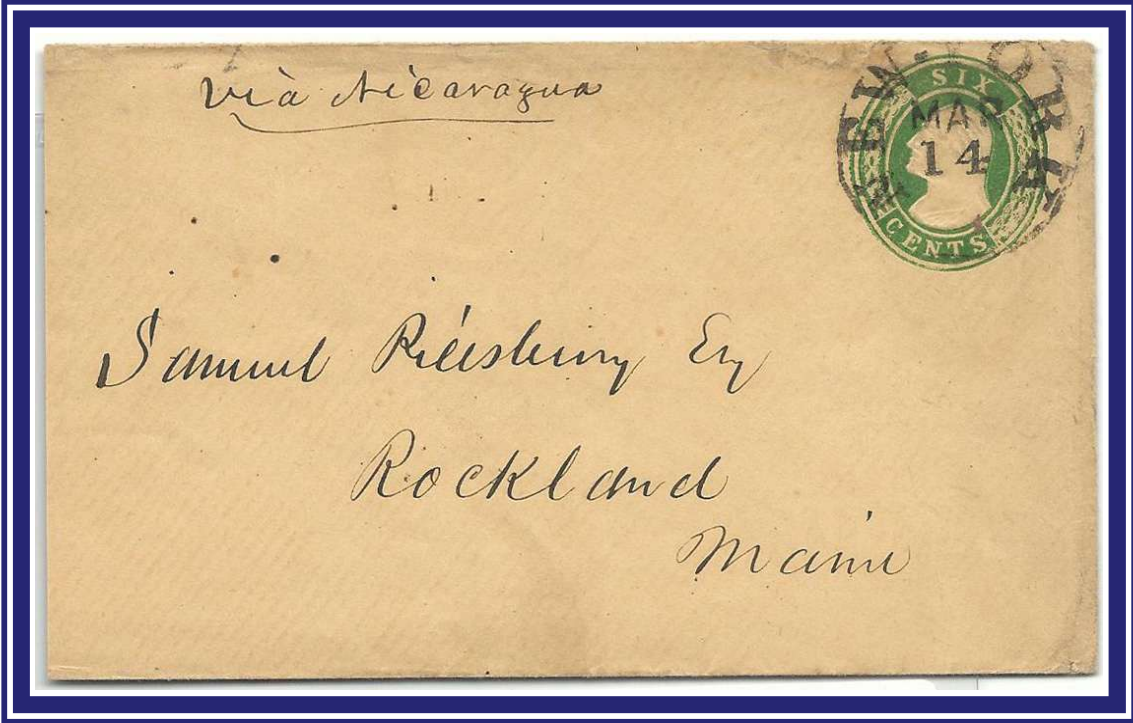 Via Nicaragua
NEW-YORK
MAR
14
SIX
CENTS
Samuel Pillsbury Esq
Rockland
Maine